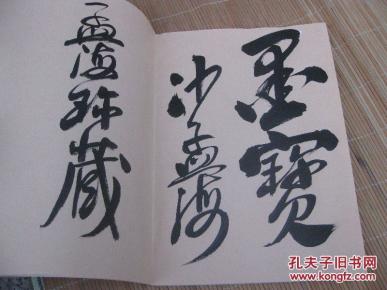 墨寶
沙孟海
孟海珍藏
孔夫子旧书网
www.kongfz.com